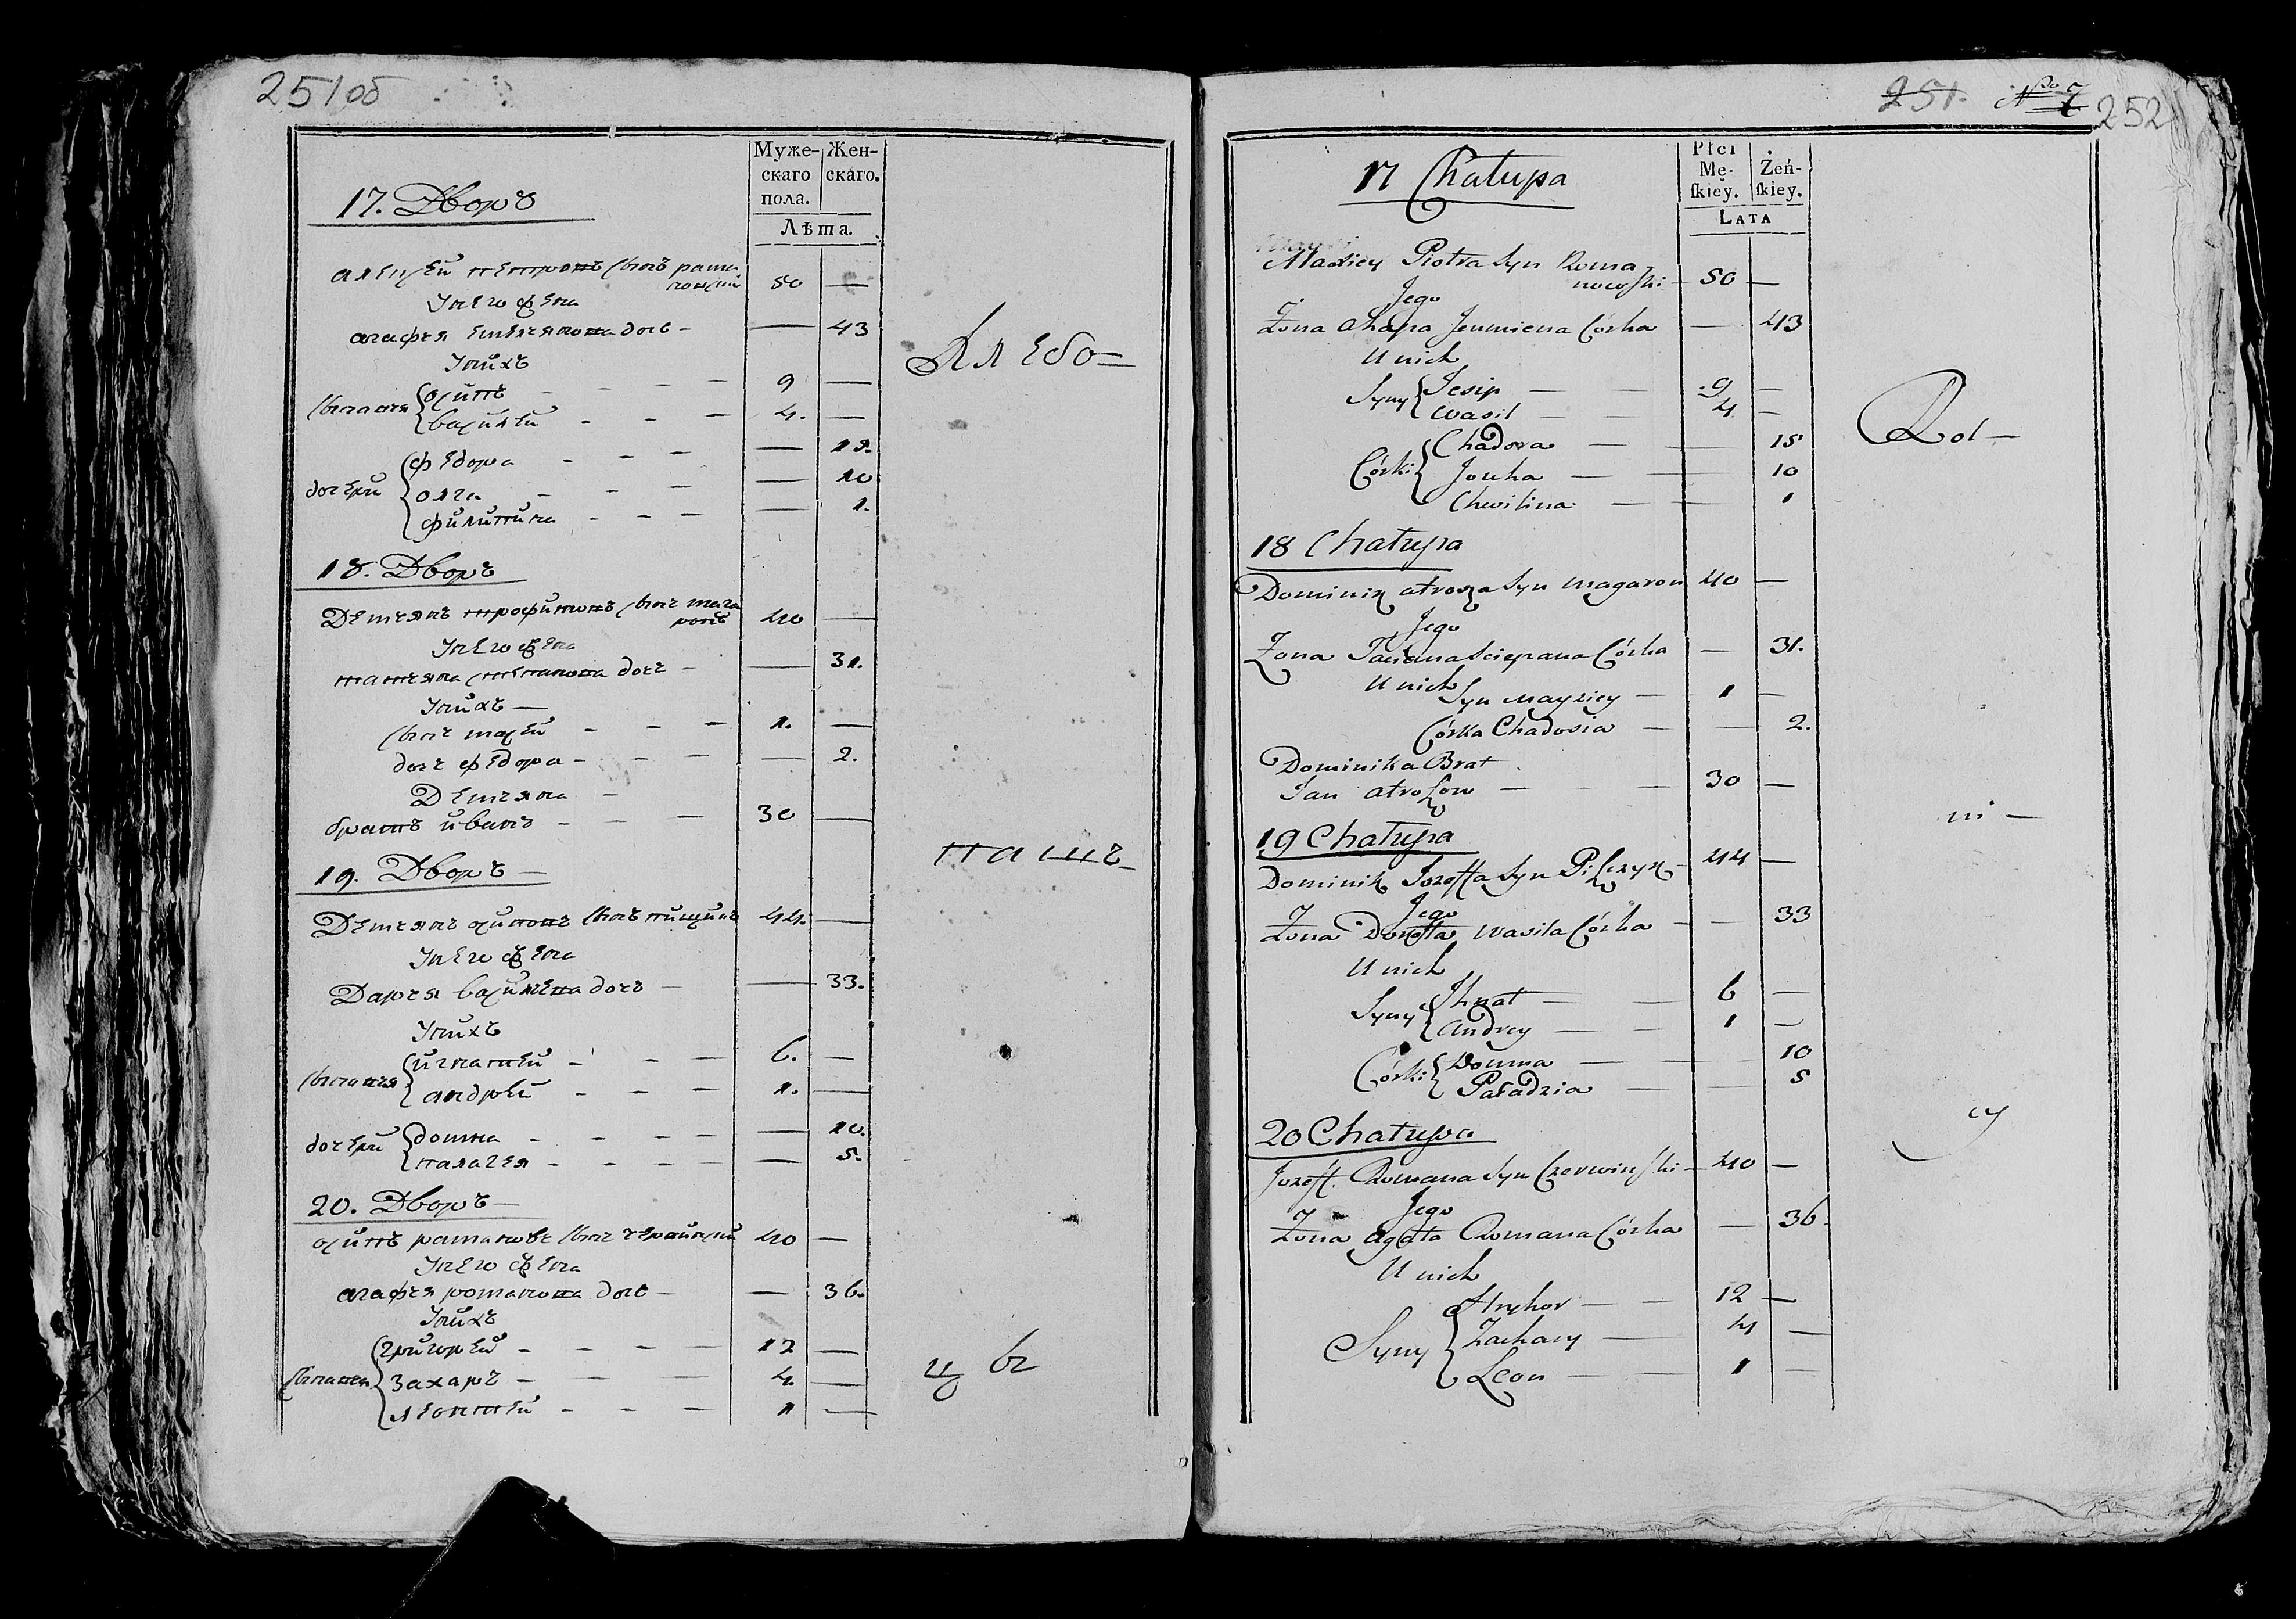 251об
Муже-
скаго
пола.
Жен-
скаго.
Лѣта.
17. Дворъ
Алексей петровъ сынъ рама
новский 50 —
У него жена
агафья емельянова дочь — — 43
У них
сыновья осипъ — 9 —
василей — 4. —
дочери федора — — 15.
олга — — 10
филипина — — 1.
Хлебо=
18. Дворъ
Демьянъ трофимовъ сынъ мага
ронъ 40 —
У него жена
татьяна степанова дочь — — 31.
У нихъ —
сынъ мосей — 1. —
дочь федора — — 2.
Демьяна —
братъ иванъ — 30 —
19. Дворъ —
пашц
Демьянъ осиповъ сынъ пищикъ 44. —
У него жена
Дарья васильева дочь — — 33.
У нихъ
сыновья игнатей — 6. —
андрей — 1. —
дочери домна — — 10.
палагея — — 5.
20. Дворъ —
осипъ романовъ сынъ червинский 40 —
У него жена
агафья романова дочь — — 36.
У нихъ
сыновья григорей — 12 —
захаръ — 4. —
леонтей — 1 —
251. Nro 7 252
Płci
Mę-
skiey.
Żeń-
skiey.
Lata
17 Chałupa
Alaxiey Piotra Syn Roma
nowski — 50 —
Jego
Żona Ahapa Jeumiena Córka — 43
U nich
Syny Jesip — 9 —
Wasil — 4 —
Córki Chadora — — 15
Jouha — — 10
Chwilina — — 1
Rol —
18 Chałupa
Dominik Syn Magaron 40 —
Jego
Żona Taciana Sciepana Córka — 31.
U nich
Syn Mayziey — 1 —
Córka Chadosia — — 2.
Dominika Brat
Jan — 30 —
ni —
19 Chałupa
Dominik Jozeffa Syn Piszczyk — 44 —
Jego
Żona Wasila Córka — — 33
U nich
Syny Ihnat — 6 —
Andrey — 1 —
Córki Doumna — — 10
Paładzia — — 5
cy
20 Chałupa
Jozeff Romana Syn Czerwinski — 40 —
Jego
Żona Agata Romana Córka — 36.
U nich
Syny Hryhor — 12 —
Zachary — 4 —
Leon — 1 —